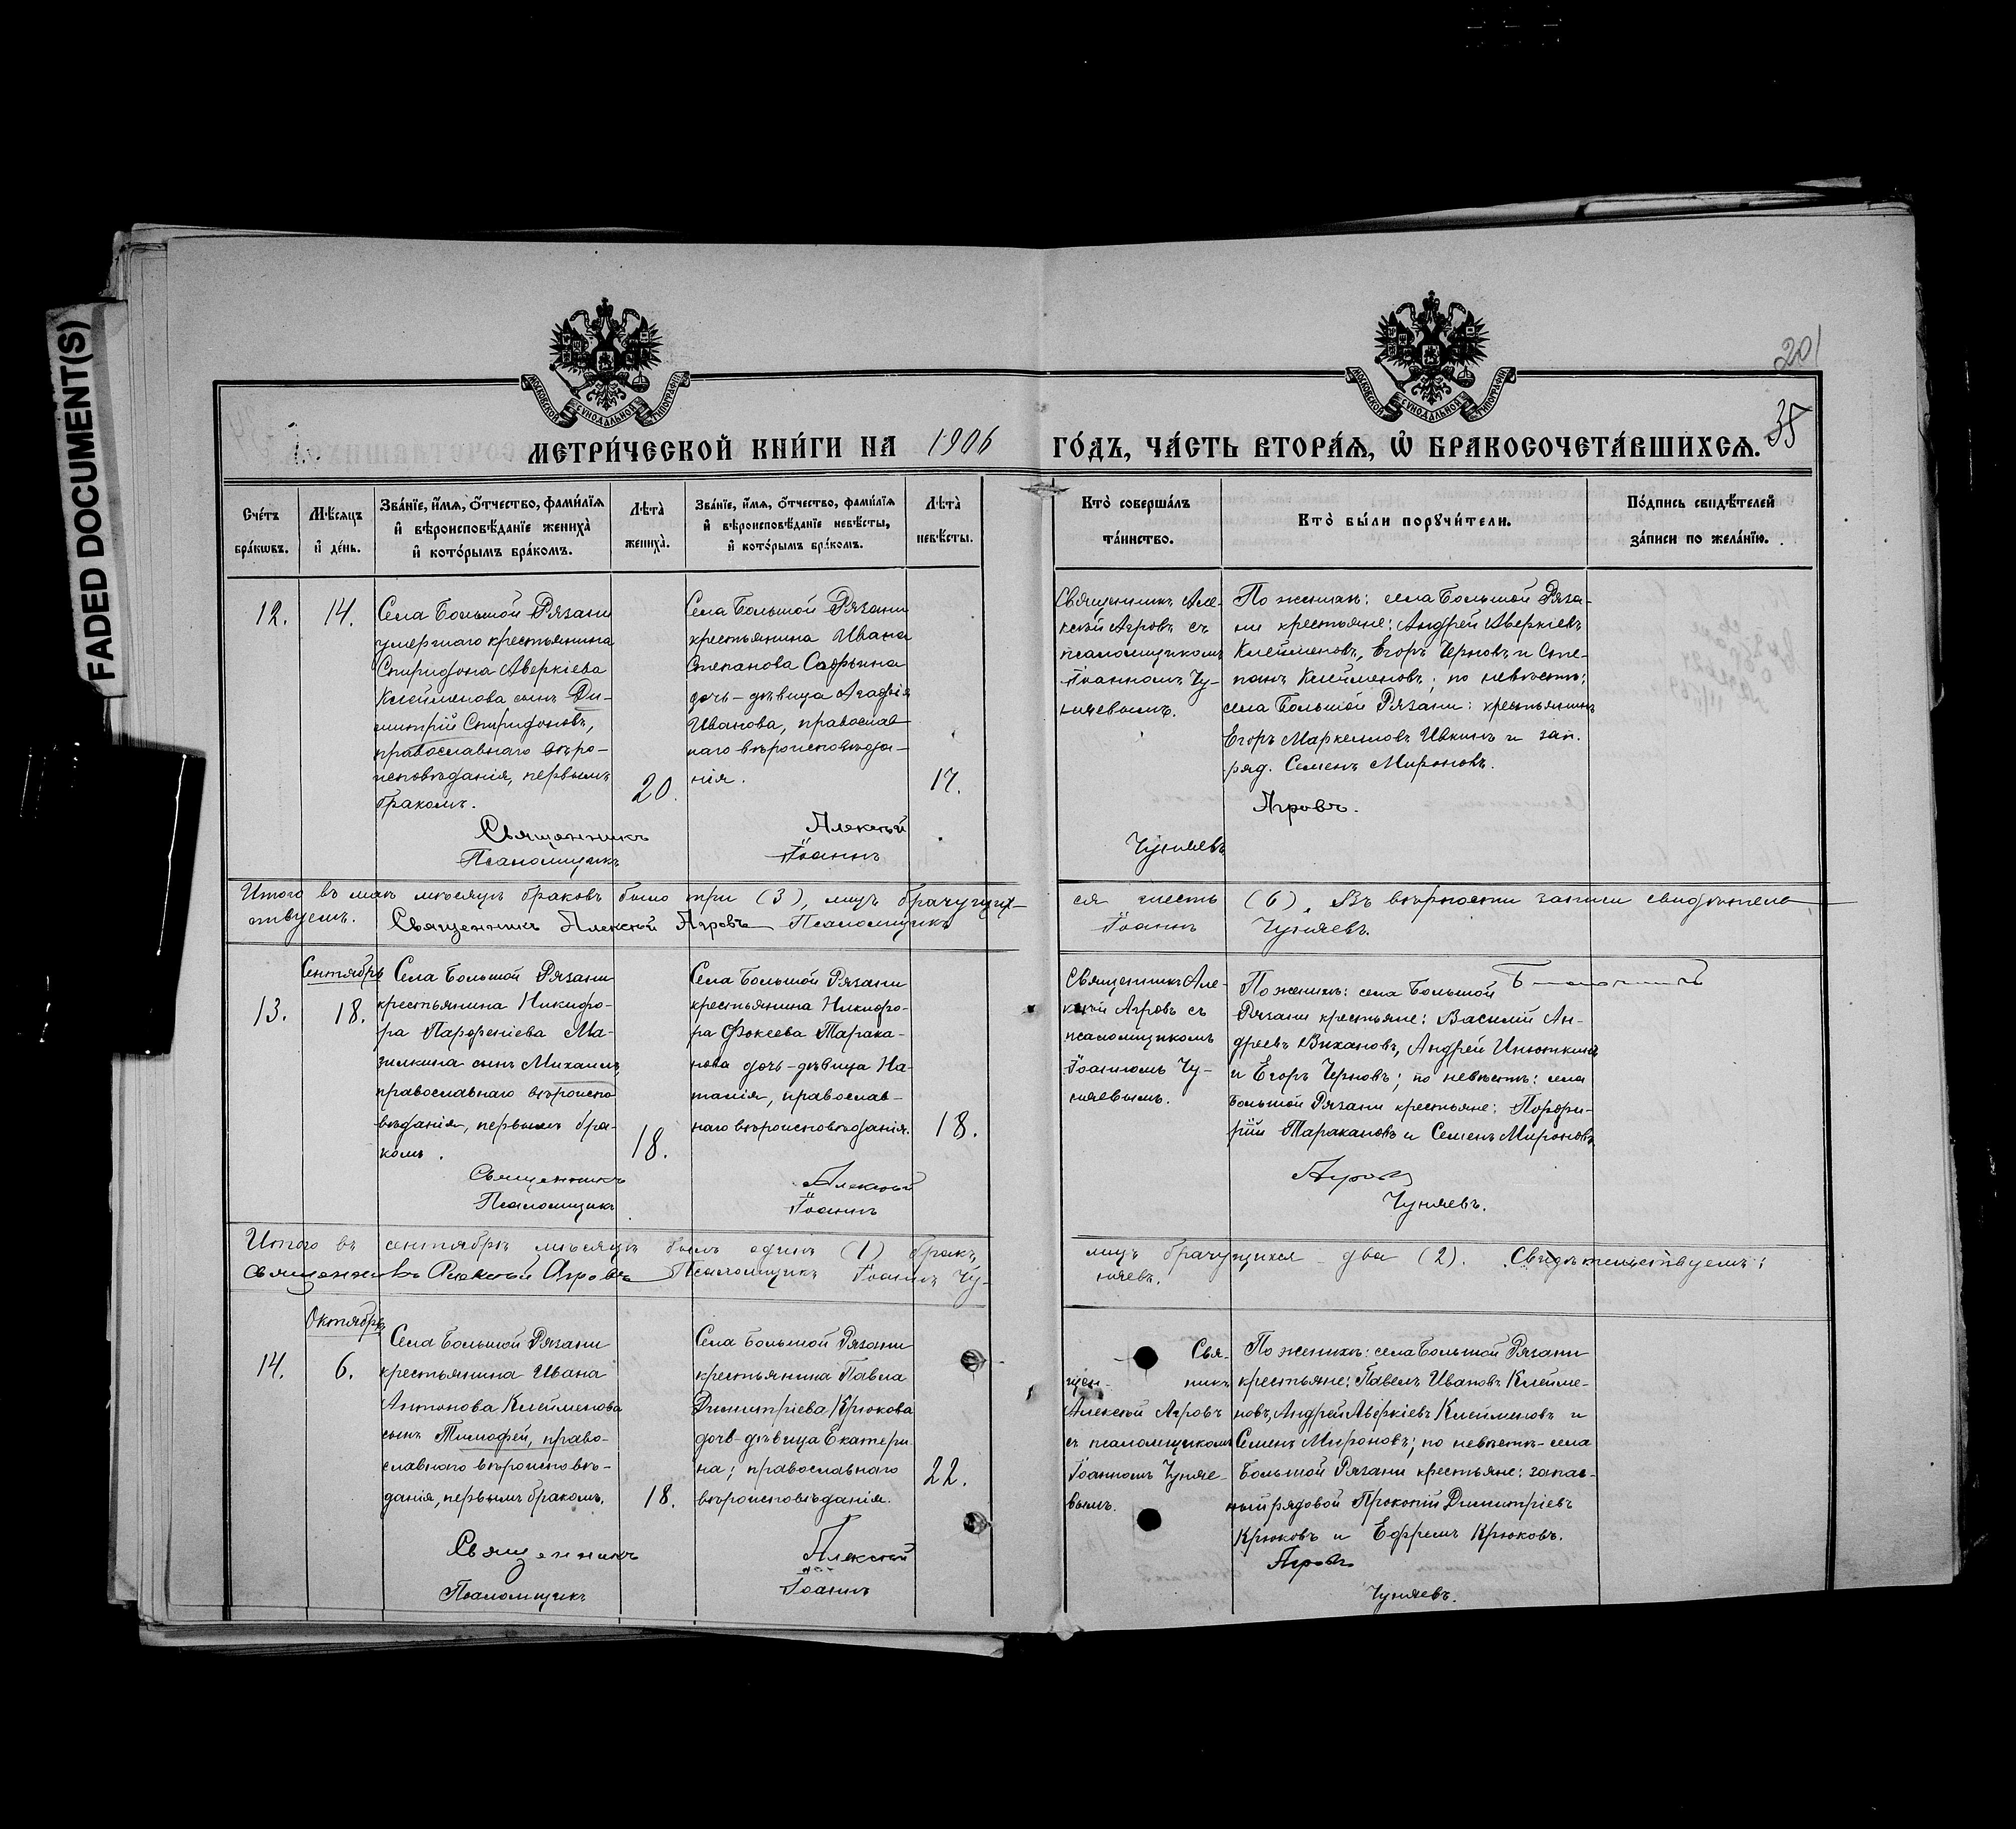 FADED DOCUMENT(S)
201
35
МОСКОВСКОЙ СУНОДАЛЬНОЙ ТИПОГРАФІИ
МОСКОВСКОЙ СУНОДАЛЬНОЙ ТИПОГРАФІИ
МЕТРИ́ЧЕСКОЙ КНИ́ГИ НА 1906 ГО́ДЪ, ЧА́СТЬ ВТОРА́Ѧ, Ѽ БРАКОСОЧЕТА́ВШИХСѦ.
Сче́тъ
бра́кѡвъ.
Мѣ́сяцъ
и҆ де́нь.
Зва́нїе, и҆́мѧ, ѻ҆́тчество, фами́лїѧ
и҆ вѣроисповѣ́данїе жениха̀
и҆ кото́рымъ бра́комъ.
Лѣ́та̀
жениха̀.
Зва́нїе, и҆́мѧ, ѻ҆́тчество, фами́лїѧ
и҆ вѣроисповѣ́данїе невѣ́сты,
и҆ кото́рымъ бра́комъ.
Лѣ́та̀
невѣ́сты.
Кто̀ соверша́лъ
та́инство.
Кто̀ бы́ли порꙋчи́тели.
По́дпись свидѣ́телей
за́писи по жела́нїю.
12.
14.
Села Большой Рязани
умершаго крестьянина
Спиридона Аверкіева
Клейменова сынъ Ди-
митрій Спиридоновъ,
православнаго вѣро-
исповѣданія, первымъ
бракомъ.
20.
Села Большой Рязани
крестьянина Ивана
Степанова Сафьина
дочь-дѣвица Агафія
Иванова, православ-
наго вѣроисповѣда-
нія.
17.
Священникъ Але-
ксѣй Агровъ съ
псаломщикомъ
Іоанномъ Чу-
няевымъ.
По женихѣ: села Большой Ряза-
ни крестьяне: Андрей Аверкіевъ
Клейменовъ, Егоръ Черновъ и Сте-
панъ Клейменовъ; по невѣстѣ:
села Большой Рязани: крестьянинъ
Егоръ Маркеловъ Ивкинъ и зап.
ряд. Семенъ Мироновъ.
Священникъ Алексѣй Агровъ.
Псаломщикъ Іоаннъ Чуняевъ
Итого въ маѣ мѣсяцѣ браковъ было три (3), лицъ брачущих-
ся шесть (6). Въ вѣрности записи свидѣтель-
ствуемъ. Священникъ Алексѣй Агровъ Псаломщикъ
Іоаннъ Чуняевъ.
Сентябрь
13.
18.
Села Большой Рязани
крестьянина Никифо-
ра Парфеніева Ма-
зилкина сынъ Михаилъ,
православнаго вѣроиспо-
вѣданія, первымъ бра-
комъ.
18.
Села Большой Рязани
крестьянина Никифо-
ра Фокеева Тарака-
нова дочь-дѣвица На-
талія, православ-
наго вѣроисповѣданія.
18.
Священникъ Але-
ксѣй Агровъ съ
псаломщикомъ
Іоанномъ Чу-
няевымъ.
По женихѣ: села Большой
Рязани крестьяне: Василій Ан-
дреевъ Вихановъ, Андрей Инюткинъ
и Егоръ Черновъ; по невѣстѣ: села
Большой Рязани крестьяне: Порфи-
рій Таракановъ и Семенъ Мироновъ
Священникъ Алексѣй Агровъ
Псаломщикъ Іоаннъ Чуняевъ.
Итого въ сентябрѣ мѣсяцѣ былъ одинъ (1) бракъ,
лицъ брачущихся два (2). Свидѣтельствуемъ:
священникъ Алексѣй Агровъ Псаломщикъ Іоаннъ Чу-
няевъ.
Октябрь
14.
6.
Села Большой Рязани
крестьянина Ивана
Антонова Клейменова
сынъ Тимофей, право-
славнаго вѣроисповѣ-
данія, первымъ бракомъ.
18.
Села Большой Рязани
крестьянина Павла
Димитріева Крюкова
дочь-дѣвица Екатери-
на; православнаго
вѣроисповѣданія.
22.
Свя-
щен-никъ
Алексѣй Агровъ
съ псаломщикомъ
Іоанномъ Чуняе-
вымъ.
По женихѣ: села Большой Рязани
крестьяне: Павелъ Ивановъ Клейме-
новъ, Андрей Аверкіевъ Клейменовъ и
Семенъ Мироновъ; по невѣстѣ-села
Большой Рязани крестьяне: запас-
ный рядовой Прокопій Димитріевъ
Крюковъ и Ефремъ Крюковъ.
Священникъ Алексѣй Агровъ
Псаломщикъ Іоаннъ Чуняевъ.